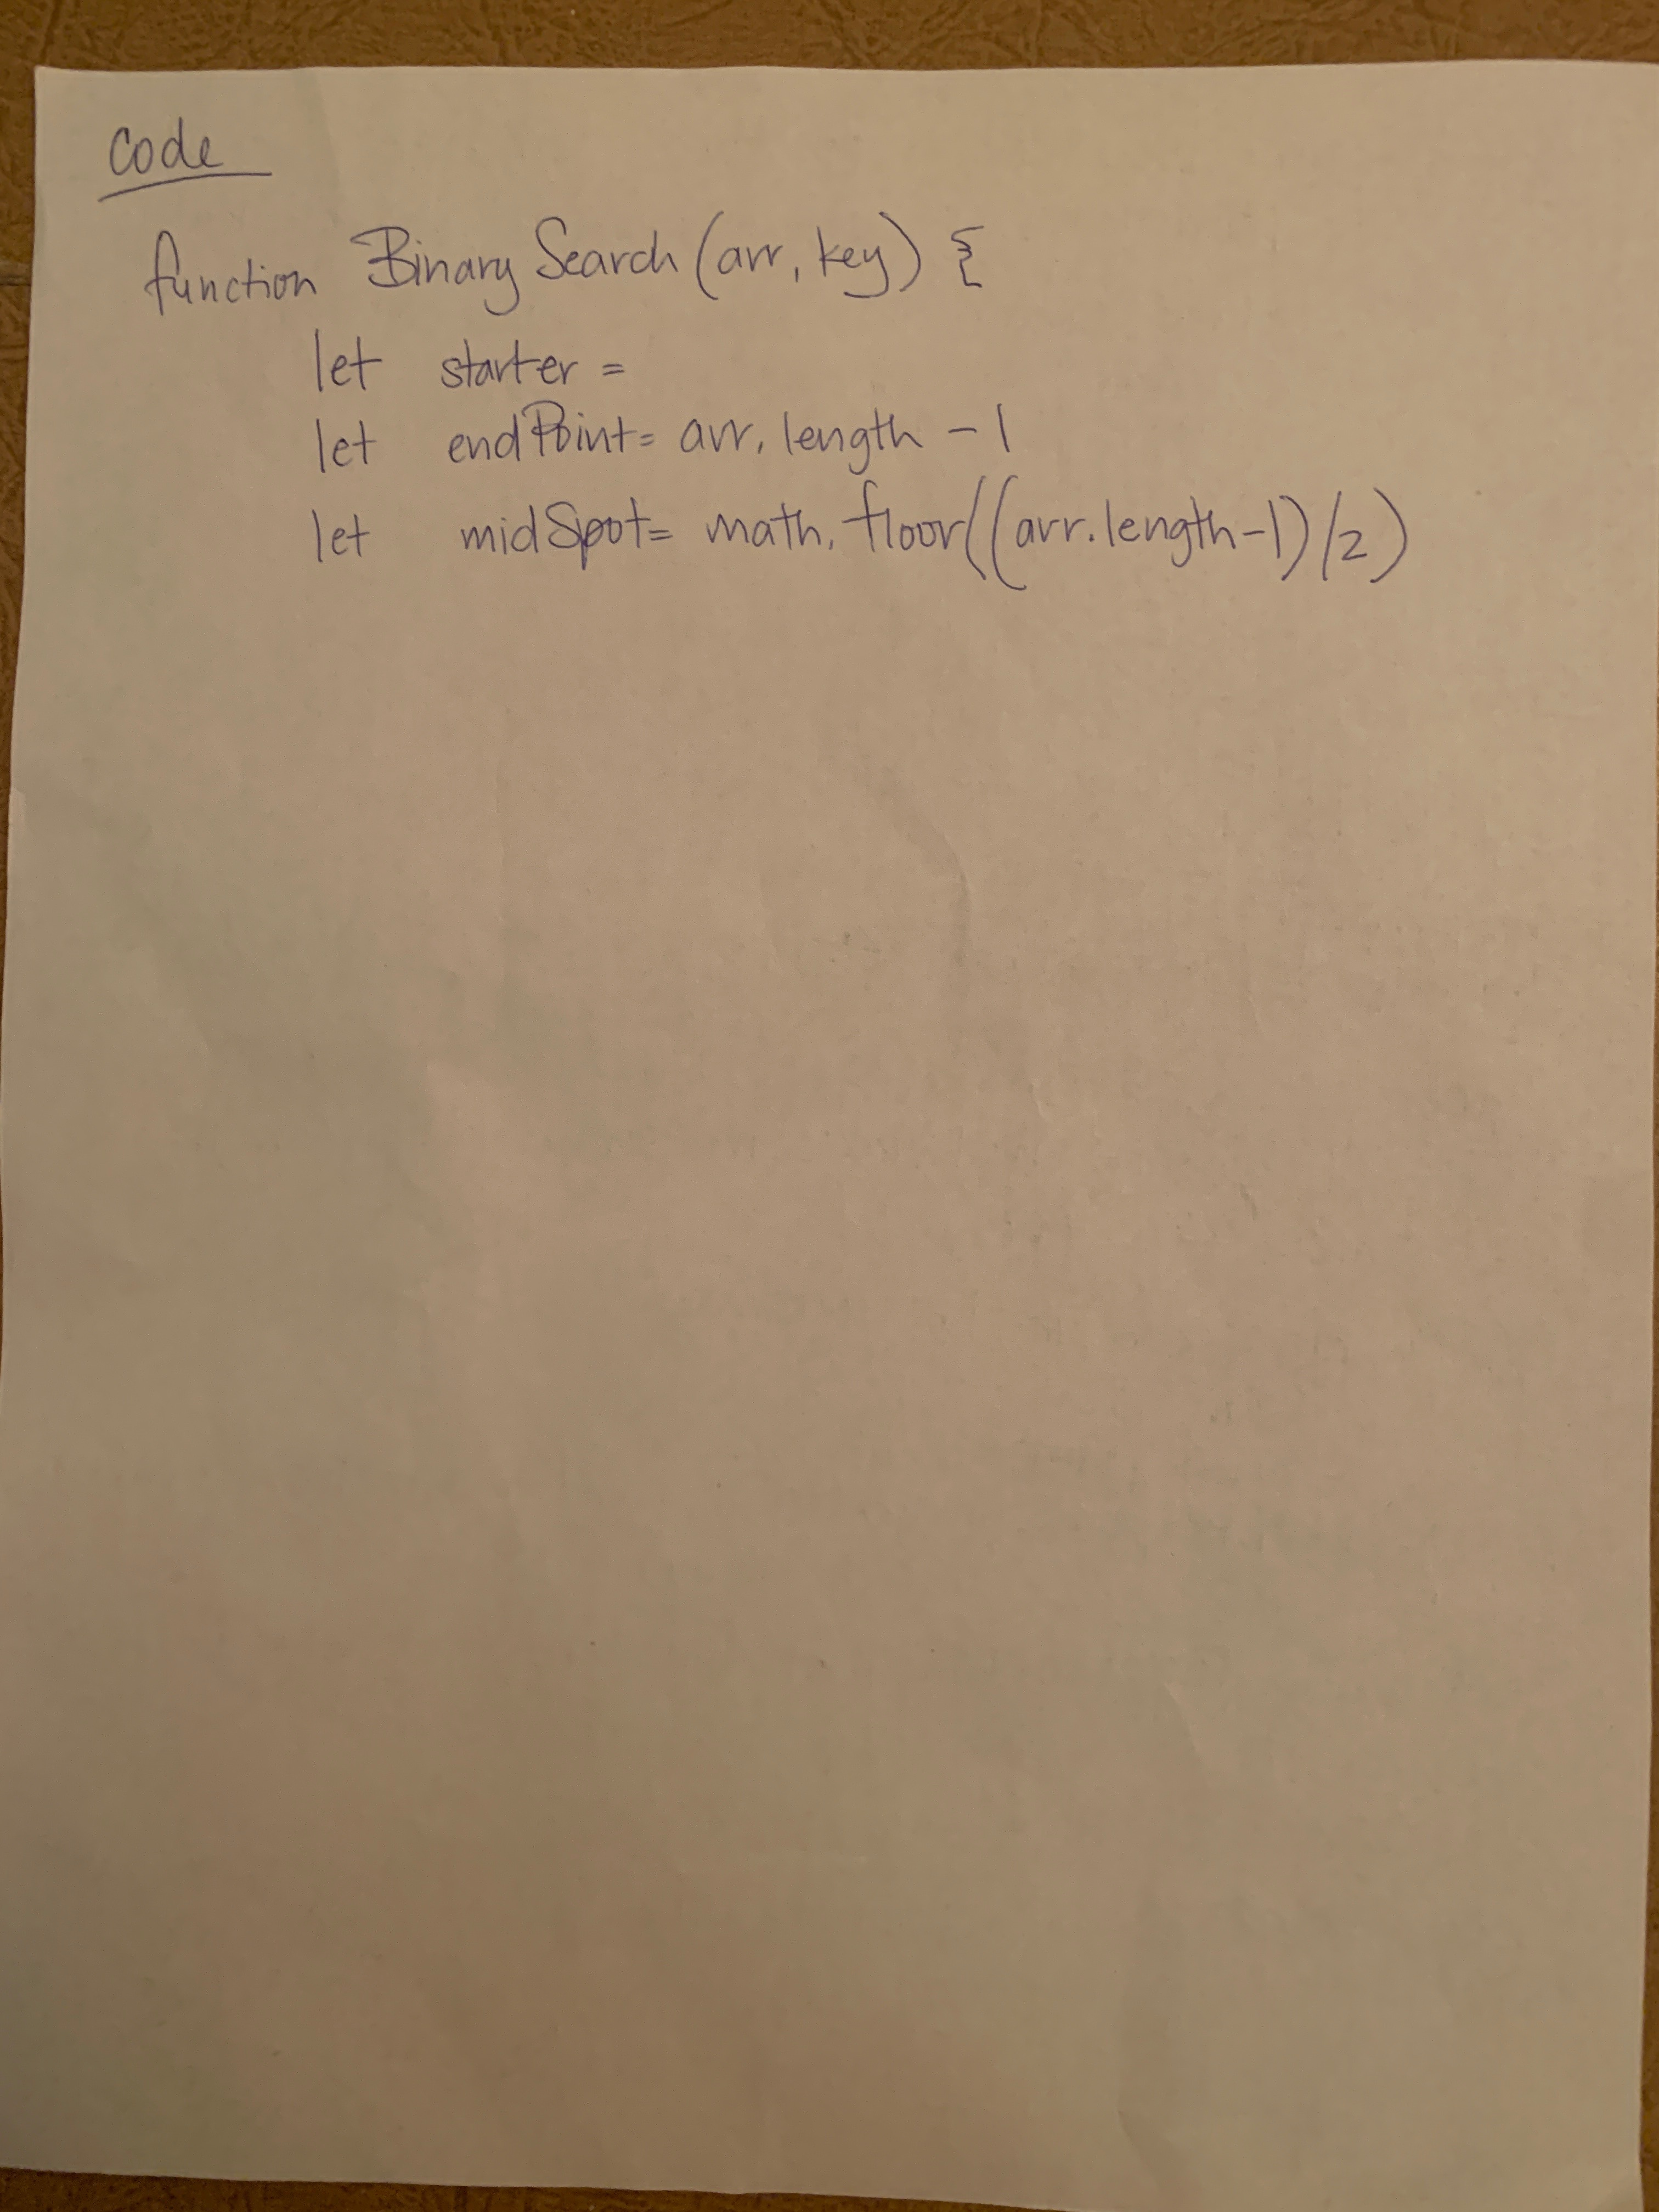 code
function BinarySearch(arr, key) {
let starter =
let endPoint= arr.length - 1
let midSpot= math.floor((arr.length-1)/2)